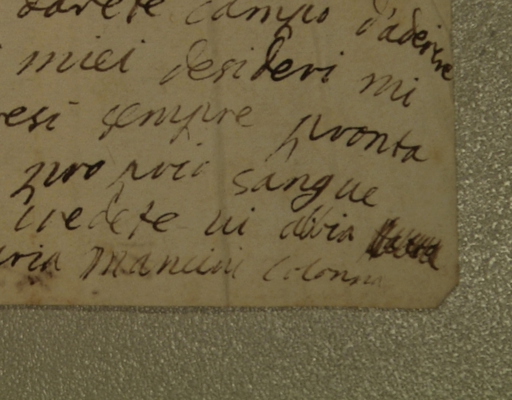 darete campo d'aderire
miei desideri mi
resi sempre pronta
proprio sangue
credete vi abbia
Mancini Colonna